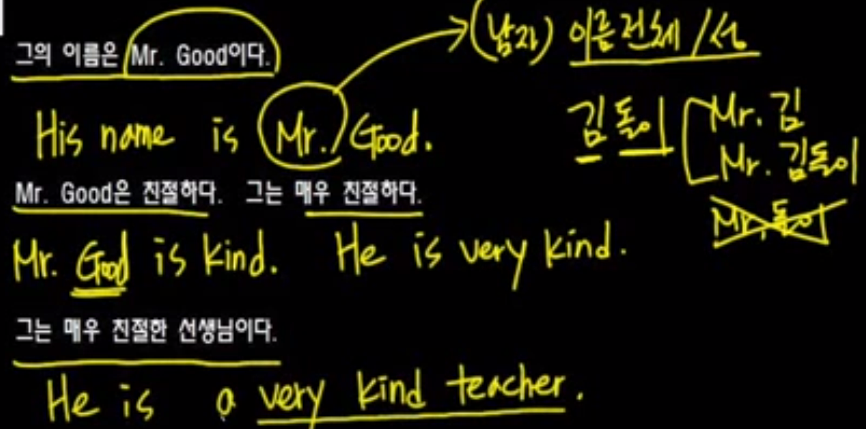 그의 이름은 Mr. Good이다.
(남자) 이름전체 / 성
His name is Mr. Good.
김돌이
Mr. 김
Mr. 김돌이
Mr. 돌이
Mr. Good은 친절하다. 그는 매우 친절하다.
Mr. Good is kind. He is very kind.
그는 매우 친절한 선생님이다.
He is a very kind teacher.